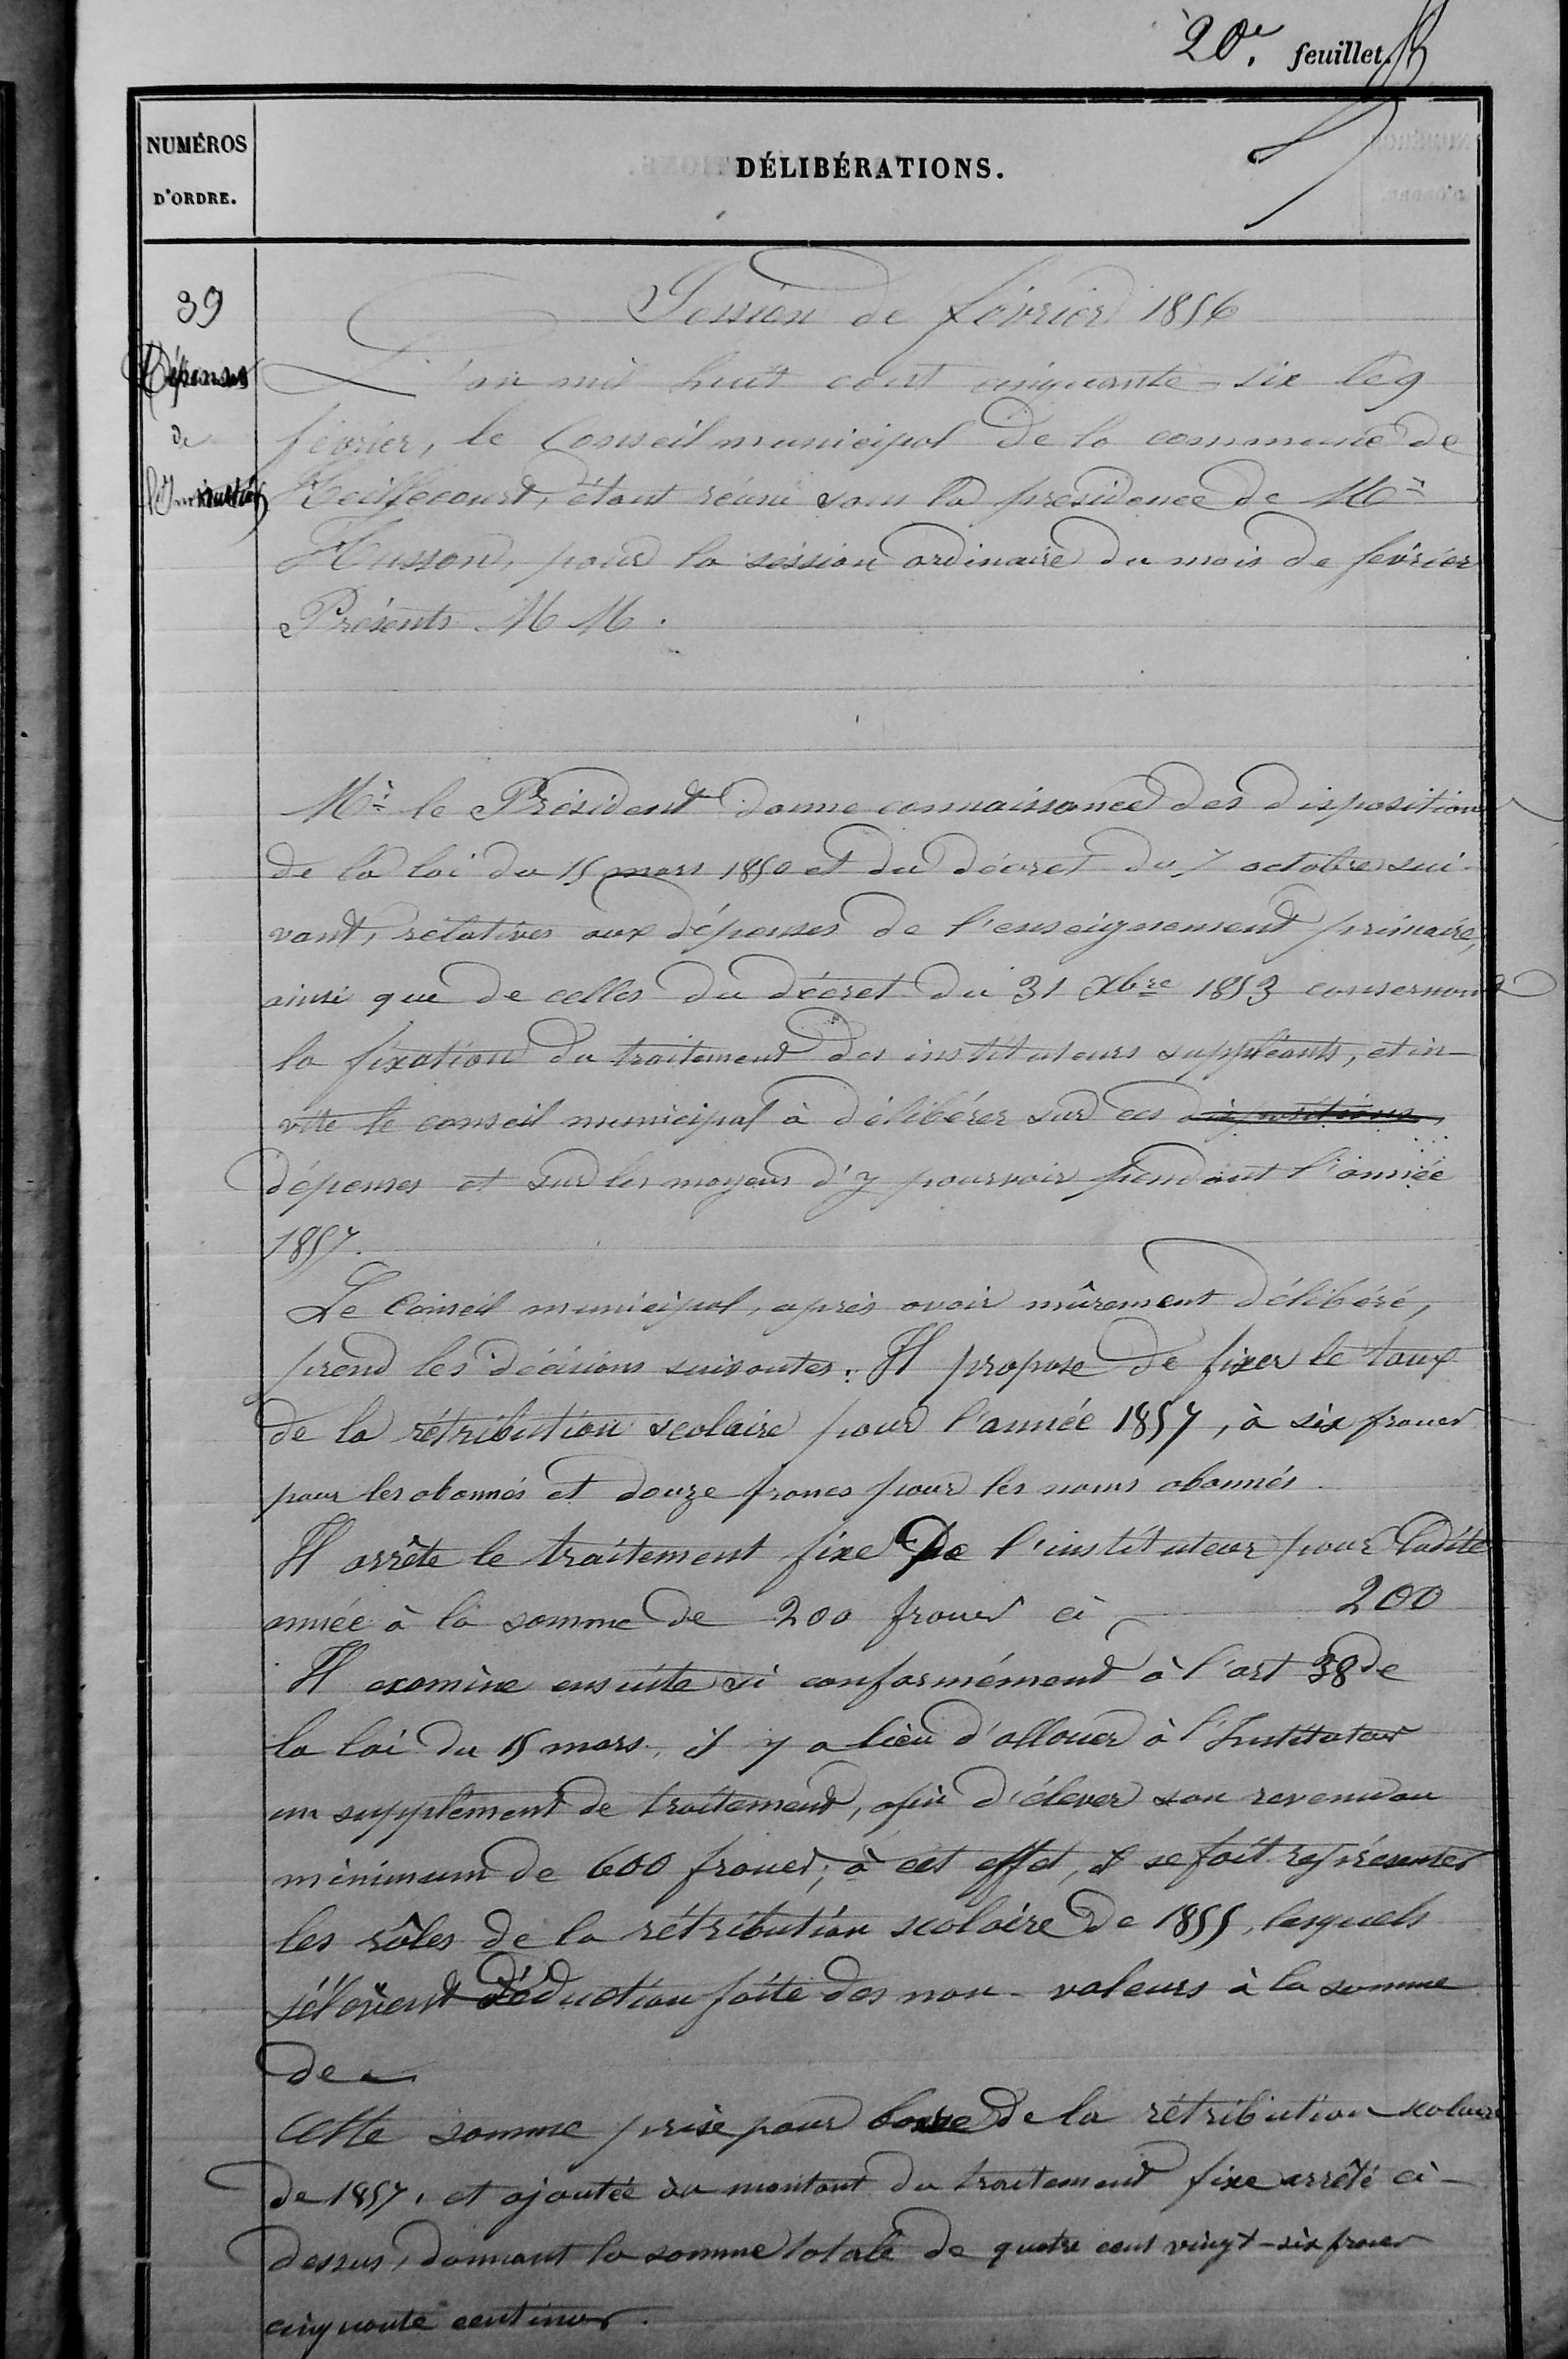 20e. feuillet.
NUMÉROS
D'ORDRE.
DÉLIBÉRATIONS.
39
Dépenses
de
l'Instruction
Session de février 1856
L'an mil huit cent cinquante-six le 9
février, le Conseil municipal de la commune de
Heillecourt, étant réuni sous la présidence de Mr
Husson, pour la session ordinaire du mois de février
Présents M M.
Mr le Président donne connaissance des dispositions
de la loi du 15 mars 1850 et du décret du 7 octobre sui-
vant, rélatives aux dépenses de l'enseignement primaire,
ainsi que de celles du décret du 31 Xbre 1853 consernant
la fixation du traitement des instituteurs suppléants, et in-
vite le conseil municipal à délibérer sur ces dispositions
dépenses et sur les moyens d'y pourvoir pendant l'année
1857.
Le Conseil municipal, après avoir mûrement délibéré,
prend les décisions suivantes: Il propose de fixer le taux
de la rétribution scolaire pour l'année 1857, à six francs
pour les abonnés et douze francs pour les nons abonnés.
Il arrête le traitement fixe de l'instituteur pour ladite
année à la somme de 200 francs ci 200
Il examine ensuite si conformément à l'art 38 de
la loi du 15 mars, il y a lieu d'allouer à l'Instituteur
un supplément de traitement, afin d'élever son revenu au
minimum de 600 francs; à cet effet, il se fait représenter
les rôles de la rétribution scolaire de 1855, lesquels
s'élèvent déduction faite des non-valeurs à la somme
de
Cette somme prise pour base de la rétribution scolaire
de 1857, et ajoutée au montant du traitement fixe arrêté ci-
dessus, donnant la somme totale de quatre cent vingt-six francs
cinquante centimes.